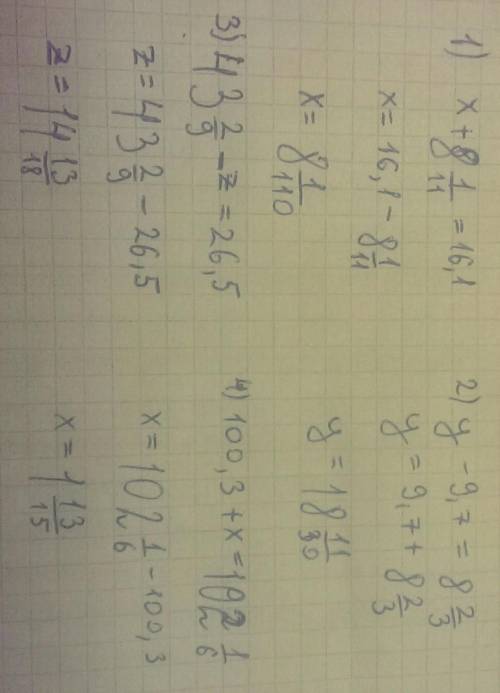 1) x + 8 1/11 = 16,1
x = 16,1 - 8 1/11
x = 8 1/110
2) y - 9,7 = 8 2/3
y = 9,7 + 8 2/3
y = 18 11/30
3) 43 2/9 - z = 26,5
z = 43 2/9 - 26,5
z = 14 13/18
4) 100,3 + x = 102 1/6
x = 102 1/6 - 100,3
x = 1 13/15